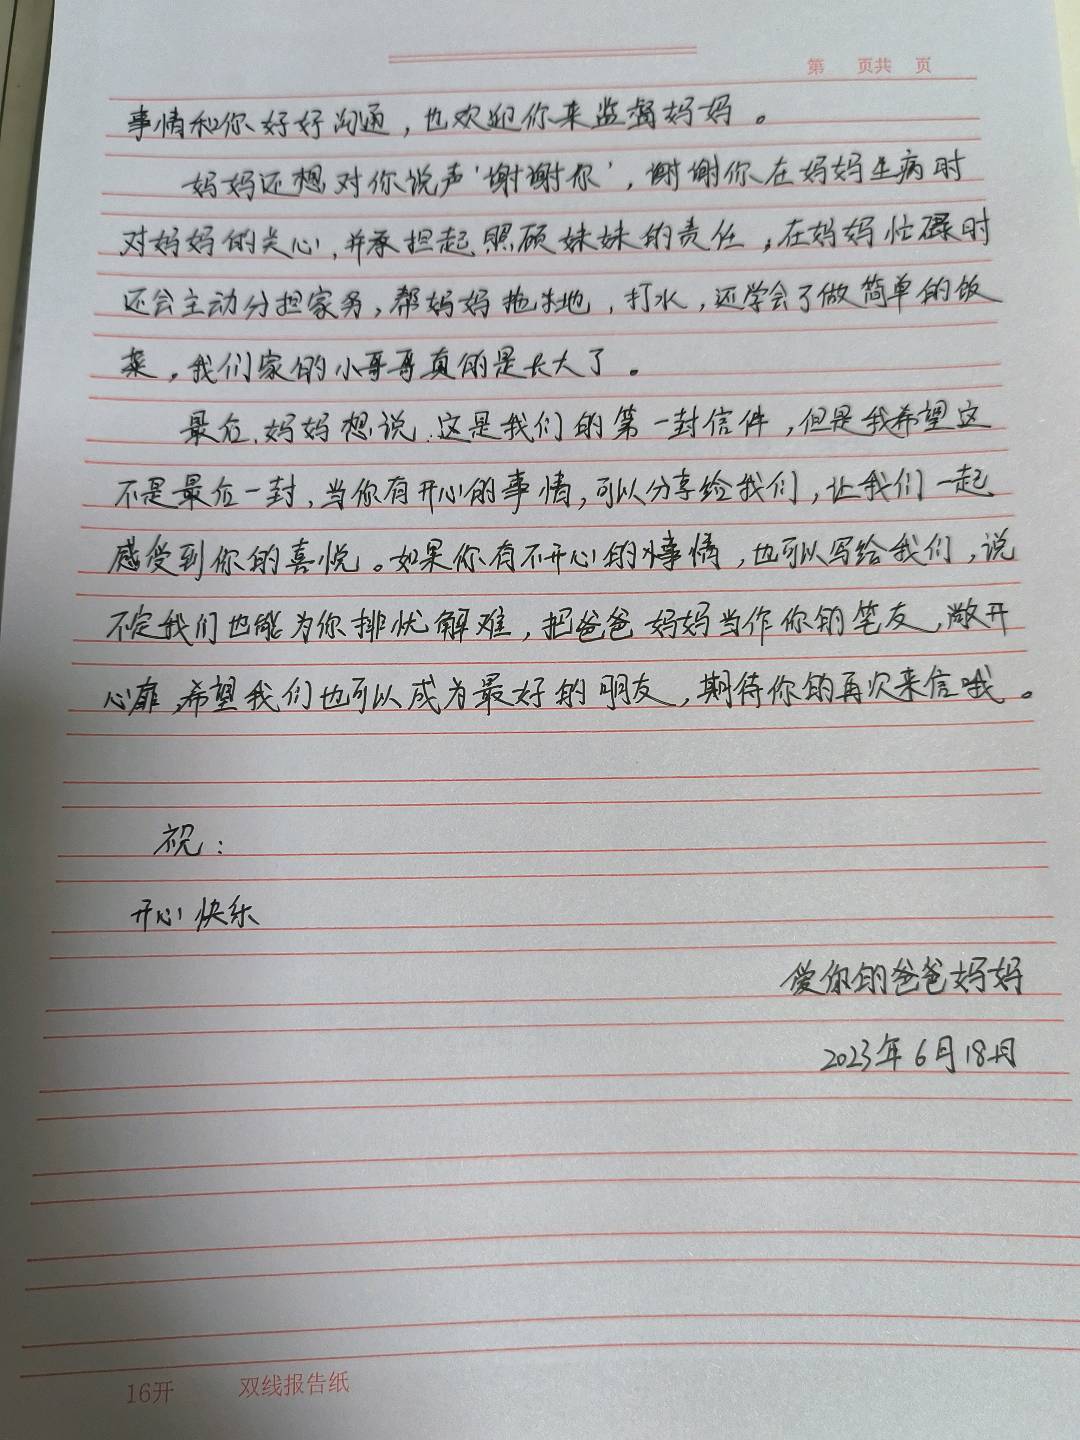 第 页共 页
事情和你好好沟通，也欢迎你来监督妈妈。
妈妈还想对你说声‘谢谢你’，谢谢你在妈妈生病时
对妈妈的关心，并承担起照顾妹妹的责任，在妈妈忙碌时
还会主动分担家务，帮妈妈拖地，打水，还学会了做简单的饭
菜，我们家的小哥哥真的是长大了。
最后，妈妈想说，这是我们的第一封信件，但是我希望这
不是最后一封，当你有开心的事情，可以分享给我们，让我们一起
感受到你的喜悦。如果你有不开心的事情，也可以写给我们，说
不定我们也能为你排忧解难，把爸爸妈妈当作你的笔友，敞开
心扉，希望我们也可以成为最好的朋友，期待你的再次来信哦。
祝：
开心快乐
爱你的爸爸妈妈
2023年6月18日
16开 双线报告纸